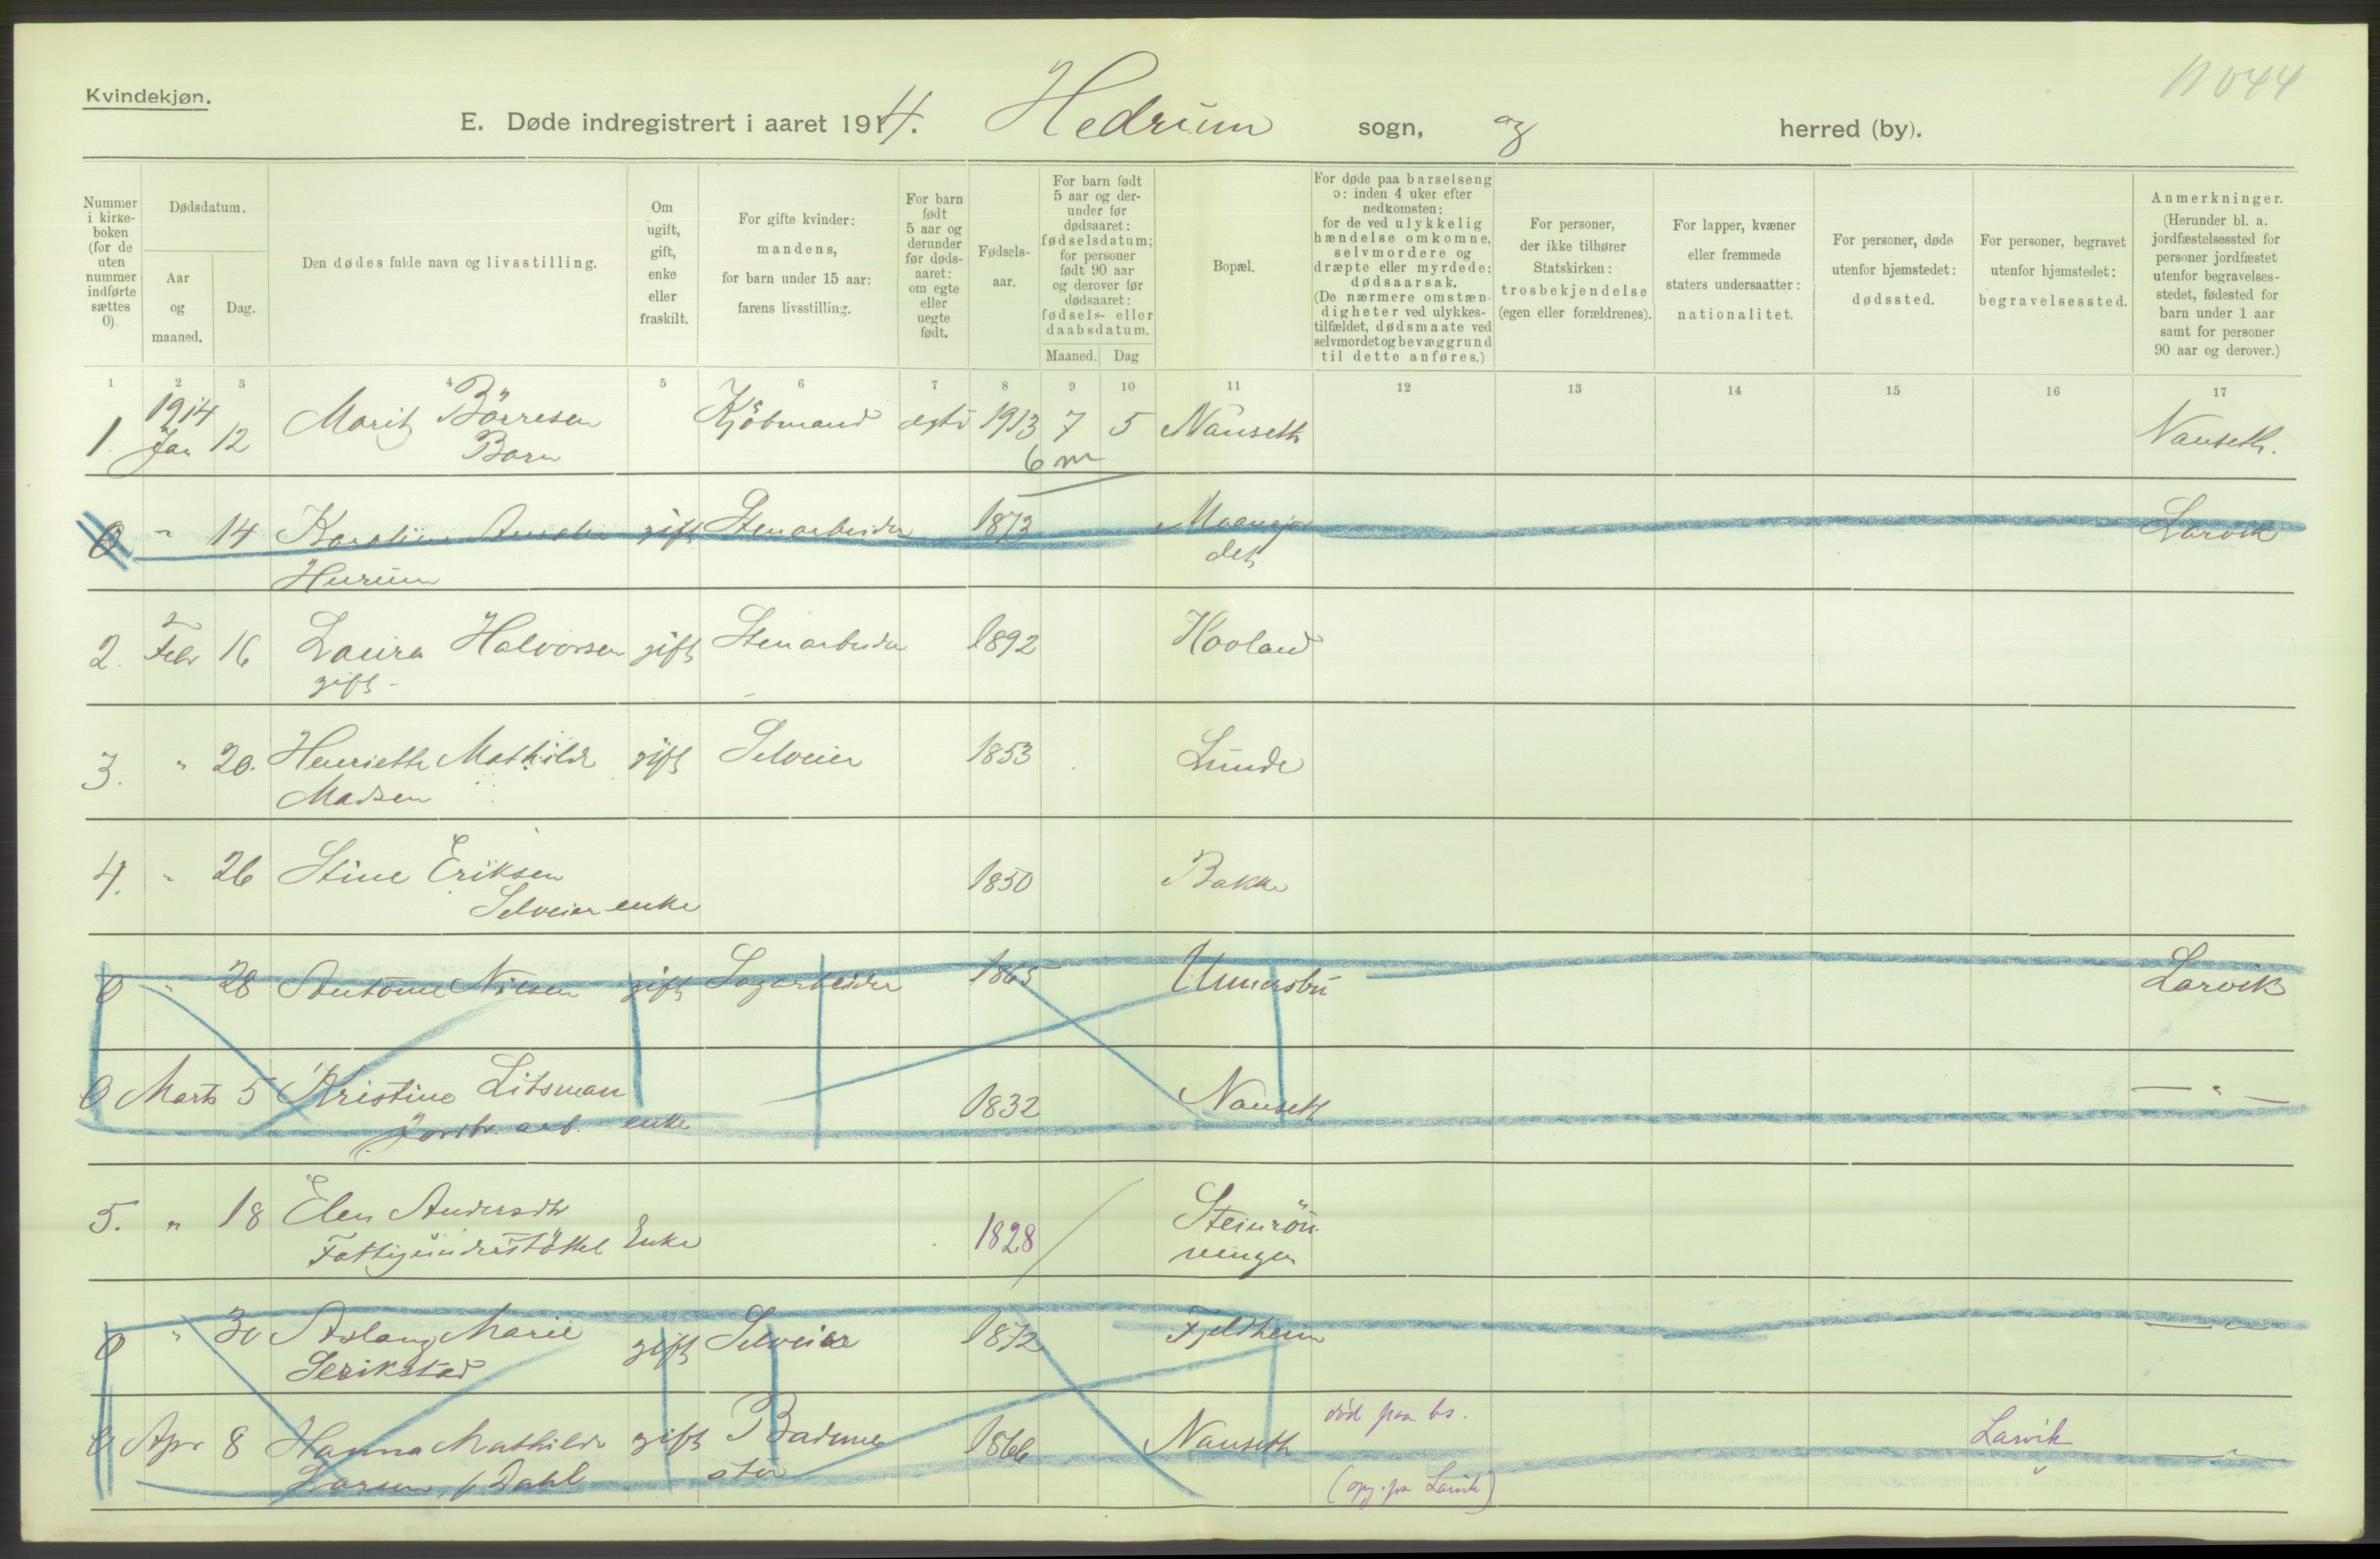 Kvindekjøn.
11044
E. Døde indregistrert i aaret 1914. Hedrum sogn, og herred (by).
Nummer i kirke- boken (for de uten nummer indførte sættes 0).
Dødsdatum.
Aar og maaned.
Dag.
Den dødes fulde navn og livsstilling.
Om ugift, gift, enke eller fraskilt.
For gifte kvinder: mandens, for barn under 15 aar: farens livsstilling.
For barn født 5 aar og derunder før døds- aaret: om egte eller uegte født.
Fødsels- aar.
For barn født 5 aar og der- under før dødsaaret: fødselsdatum; for personer født 90 aar og derover før dødsaaret: fødsels- eller daabsdatum.
Maaned. Dag
Bopæl.
For døde paa barselseng ɔ: inden 4 uker efter nedkomsten: for de ved ulykkelig hændelse omkomne, selvmordere og dræpte eller myrdede: dødsaarsak. (De nærmere omstæn- digheter ved ulykkes- tilfældet, dødsmaate ved selvmordet og bevæggrund til dette anføres.)
For personer, der ikke tilhører Statskirken: trosbekjendelse (egen eller forældrenes).
For lapper, kvæner eller fremmede staters undersaatter: nationalitet.
For personer, døde utenfor hjemstedet: dødssted.
For personer, begravet utenfor hjemstedet: begravelsessted.
Anmerkninger. (Herunder bl. a. jordfæstelsessted for personer jordfæstet utenfor begravelses- stedet, fødested for barn under 1 aar samt for personer 90 aar og derover.)
1 2 3 4 5 6 7 8 9 10 11 12 13 14 15 16 17
1914
1. Jan 12 Marit Börresen Kjöbmand egte 1913 7 5 Nauseth Nauseth.
Barn 6 m
0 " 14 Karoline Amalie gift Stenarbeider 1873 Moengjor Larvik
Hurum det
2
2. Febr 16 Laura Halvorsen gift Stenarbeider 1892 Haoland
gift -
3. " 20. Henriette Mathilde gift Selveier 1853 Lunde
Madsen
4. " 26 Stine Eriksen 1850 Bakke
Selveier enke
0 " 28 Antonie Nilsen gift Sagarbeider 1865 Unnersbu Larvik
0 Marts 5 Kristine Litsman 1832 Nauseth — " —
Jordbr. arb. enke
5. " 18 Elen Andersdtr 1828 Steinrön
Fattigunderstöttet Enke ningen
0 " 30 Aslaug Marie gift Selveier 1872 Fjeldheim — " —
Serikstad
0 Apr 8 Hanna Mathilde gift Bademe 1866 Nauseth død paa bs. Larvik — " —
Larsen, f Dahl ster (opg. fra Larvik)